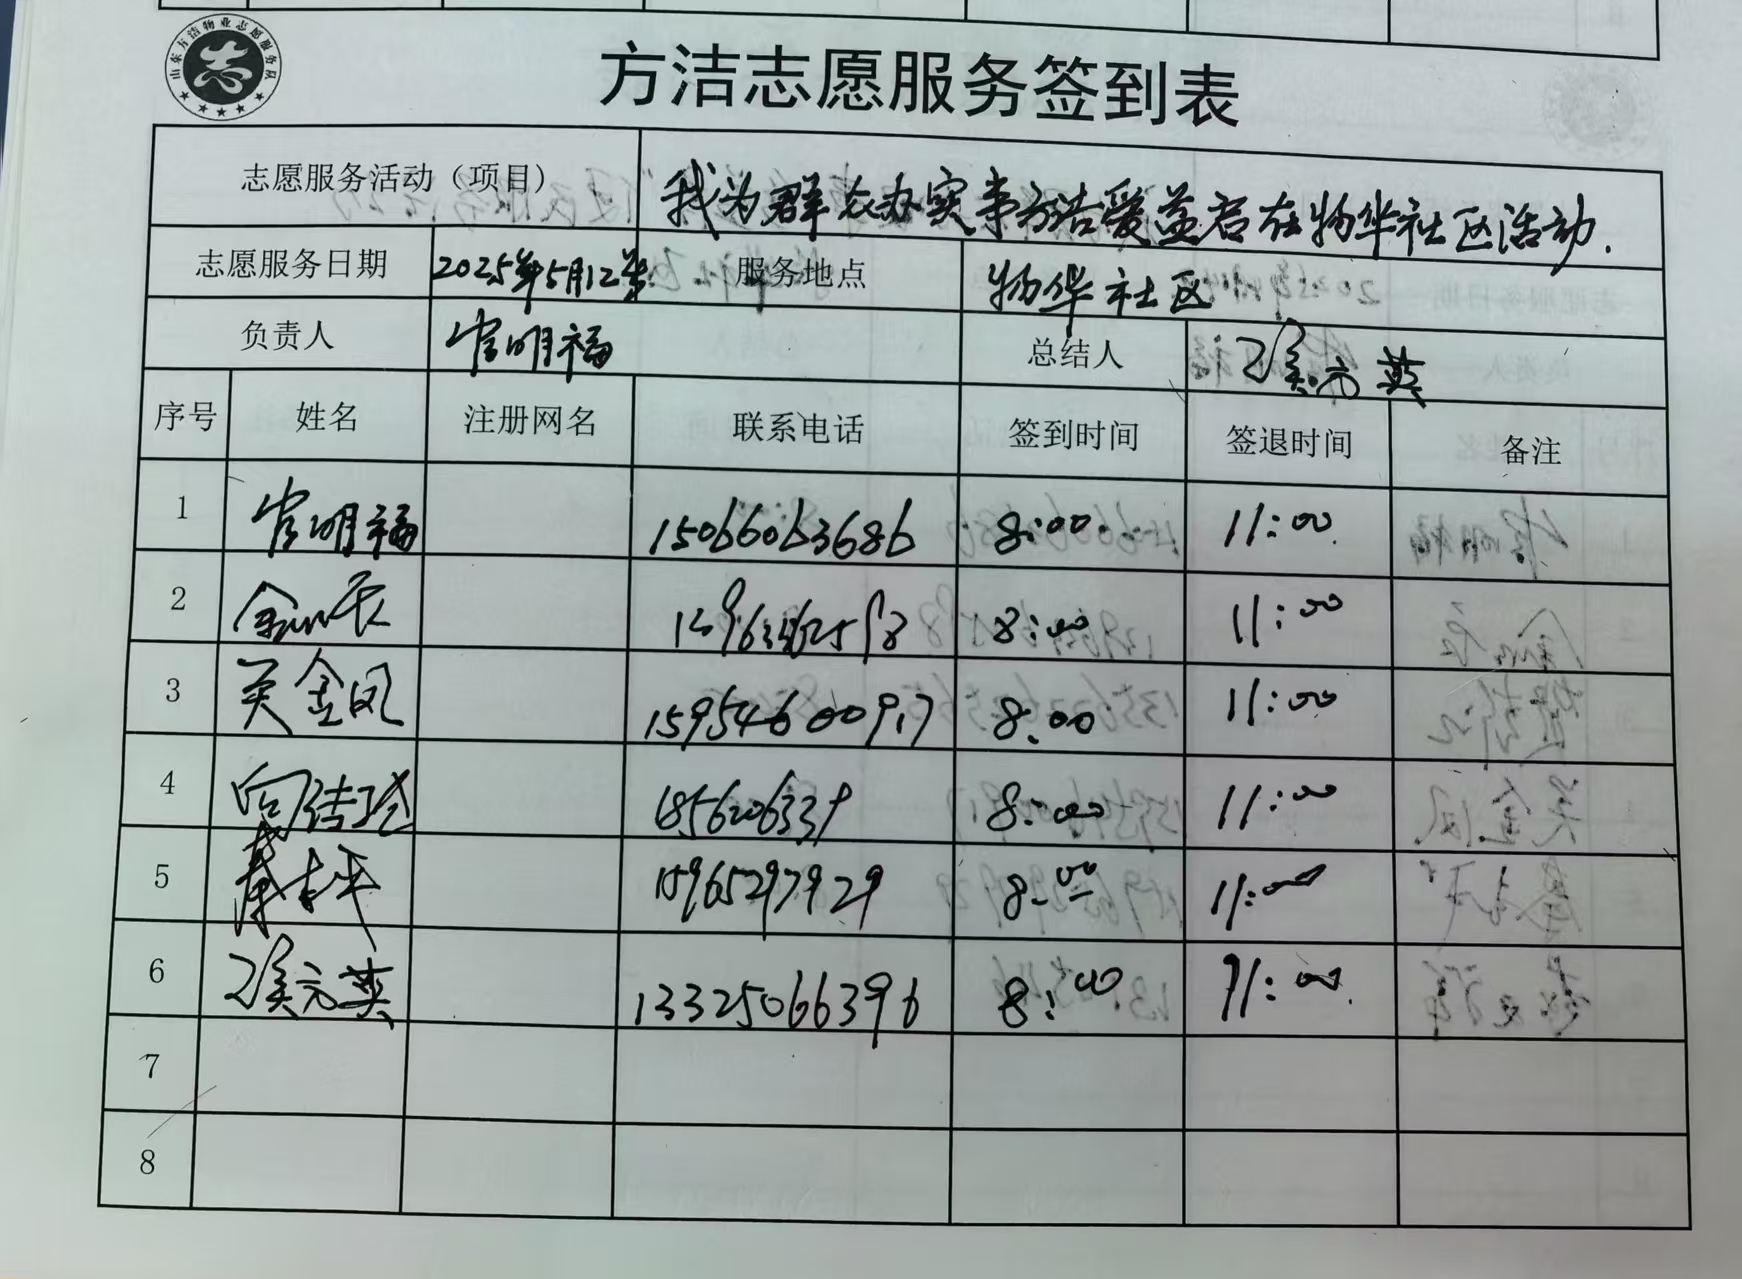 山东方洁物业志愿服务队
方洁志愿服务签到表
志愿服务活动（项目） 我为群众办实事方洁爱益启在物华社区活动.
志愿服务日期 2025年5月12 服务地点 物华社区
负责人 官明福 总结人 元英
序号 姓名 注册网名 联系电话 签到时间 签退时间 备注
1 官明福 15066063686 8:00 11:00
2 8:00 11:00
3 关金凤 15954600917 8:00 11:00
4 8:00 11:00
5 15965297929 8:00 11:00
6 元英 13325066396 8:00 11:00
7
8